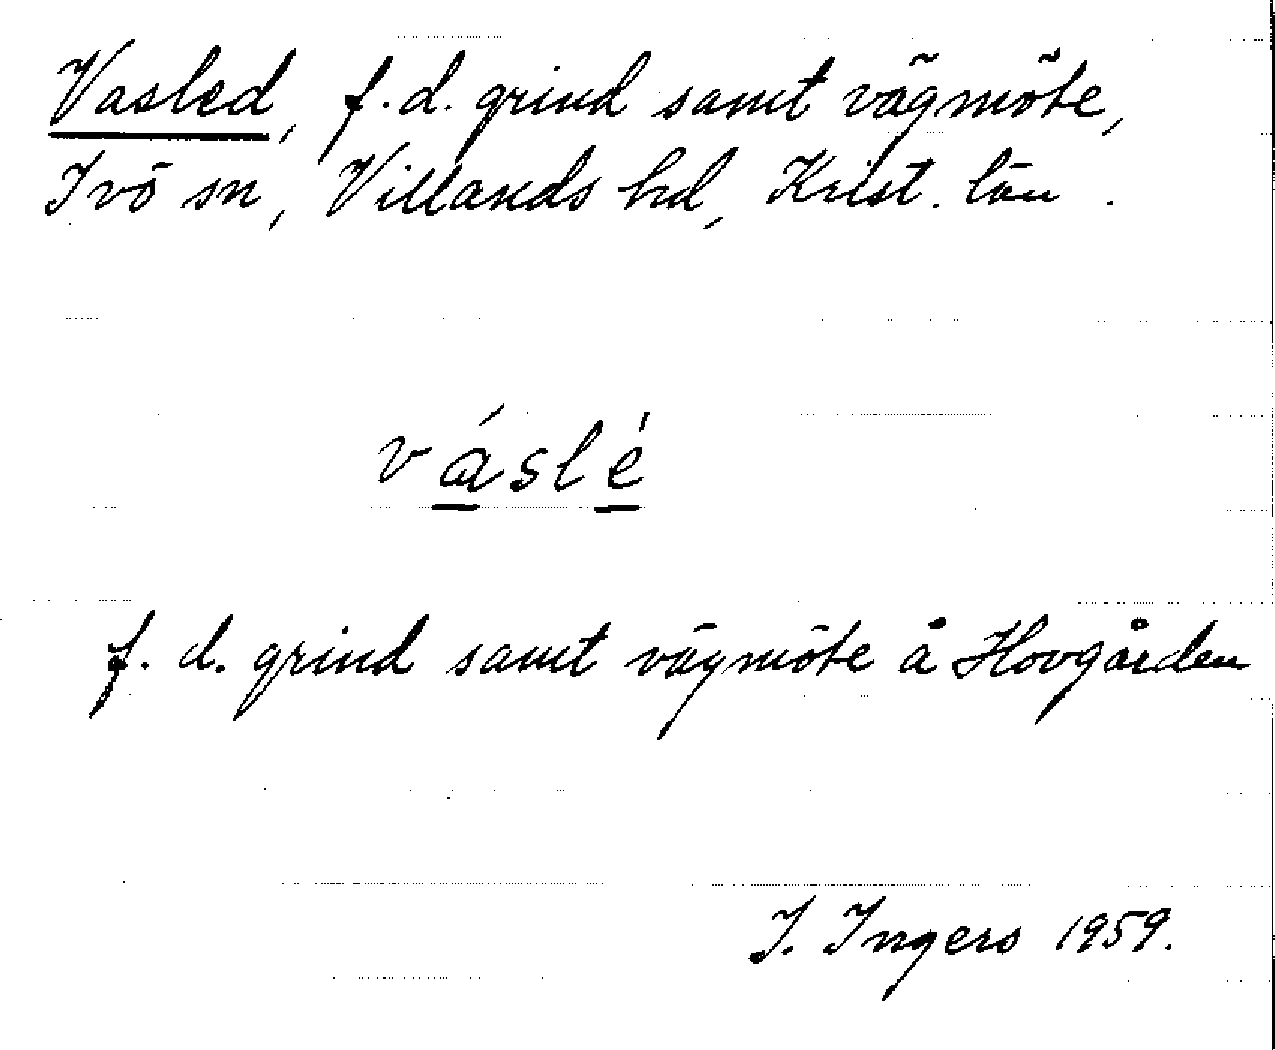 Vasled, f.d. grind samt vägmöte,
Ivö sn, Villands hd, Krist. län.
váslé
f. d. grind samt vägmöte å Hovgården
I. Ingers 1959.